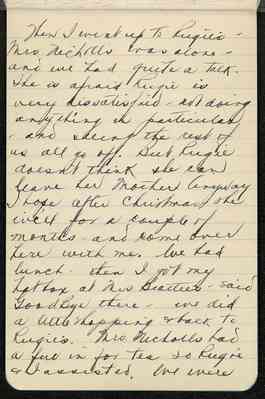 Then I went up to Rugie's -
Mrs. Nicholls was alone -
and we had quite a talk.
She is afraid Rugie is
very dissatisfied - not doing
anything in particular
- and seeing the rest of
us all go off. But Rugie
doesn't think she can
leave her Mother anyway
I hope after Christmas she
will for a couple of
months - and come over
here with me. We had
lunch - then I got my
hatbox at Mrs Beatties - said
Goodbye there - we did
a little shopping & back to
Rugie's. Mrs. Nicholls had
a few in for tea so Rugie
& I assisted. We were